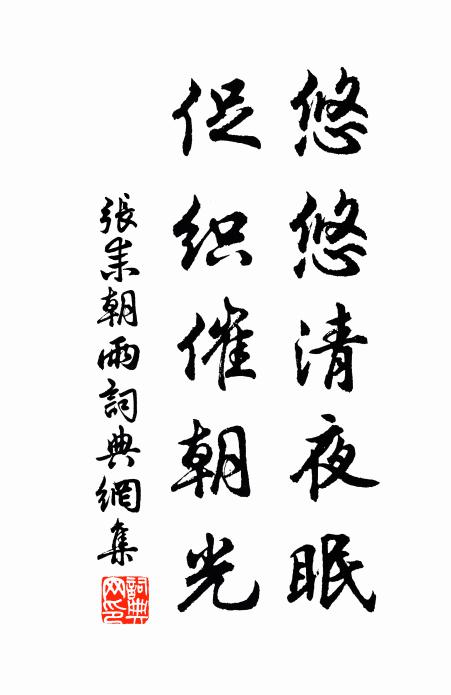 悠悠清夜眠
促织催朝光
張耒朝雨詞典網集
詞典网印